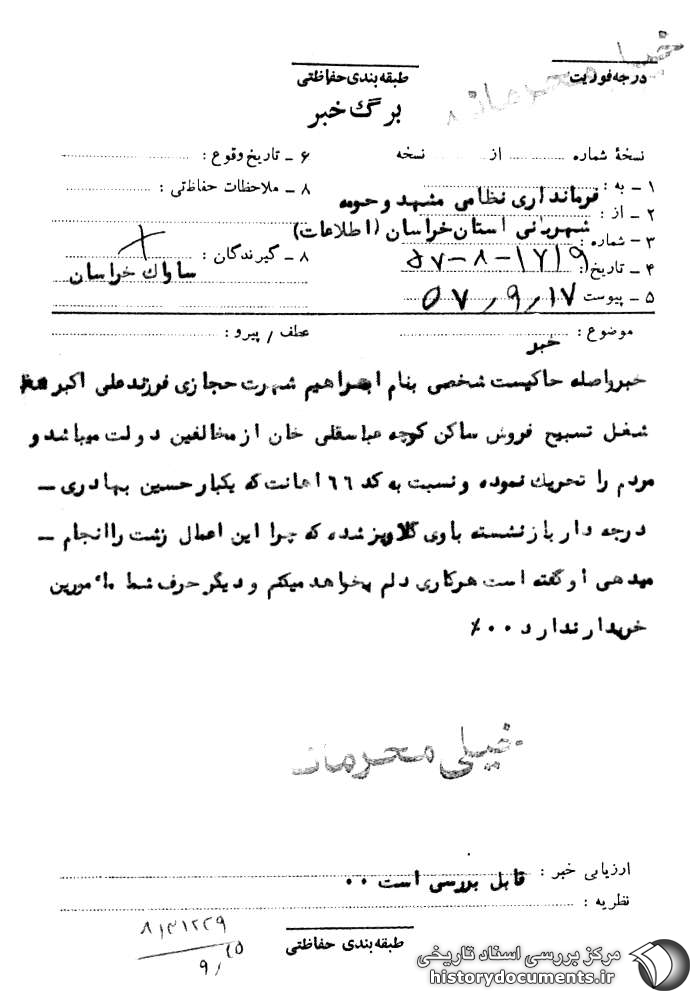 خیلی محرمانه
درجه فوریت
طبقه بندی حفاظتی
برگ خبر
نسخهٔ شماره ............ از ............ نسخه
۶ ـ تاریخ وقوع :
۱ ـ به : فرمانداری نظامی مشهد و حومه
۸ ـ ملاحظات حفاظتی :
۲ ـ از : شهربانی استان خراسان (اطلاعات)
۳ ـ شماره : ۱۷۱۹-۸-۵۷
۸ ـ گیرندگان : ساواک خراسان
۴ ـ تاریخ :
۵ ـ پیوست ۵۷/۹/۱۷
موضوع : خبر
عطف / پیرو :
خبر واصله حاکیست شخصی بنام ابراهیم شهرت حجازی فرزند علی اکبر
شغل تسبیح فروش ساکن کوچه عباسقلی خان از مخالفین دولت میباشد و
مردم را تحریک نموده و نسبت به کد ٦٦ اهانت که یکبار حسین بهادری –
درجه دار بازنشسته باوی گلاویز شده که چرا این اعمال زشت را انجام –
میدهی او گفته است هرکاری دلم بخواهد میکنم و دیگر حرف شما مأمورین
خریدار ندارد ۰۰٪
خیلی محرمانه
ارزیابی خبر : قابل بررسی است ۰۰
نظریه :
طبقه بندی حفاظتی
مرکز بررسی اسناد تاریخی
historydocuments.ir